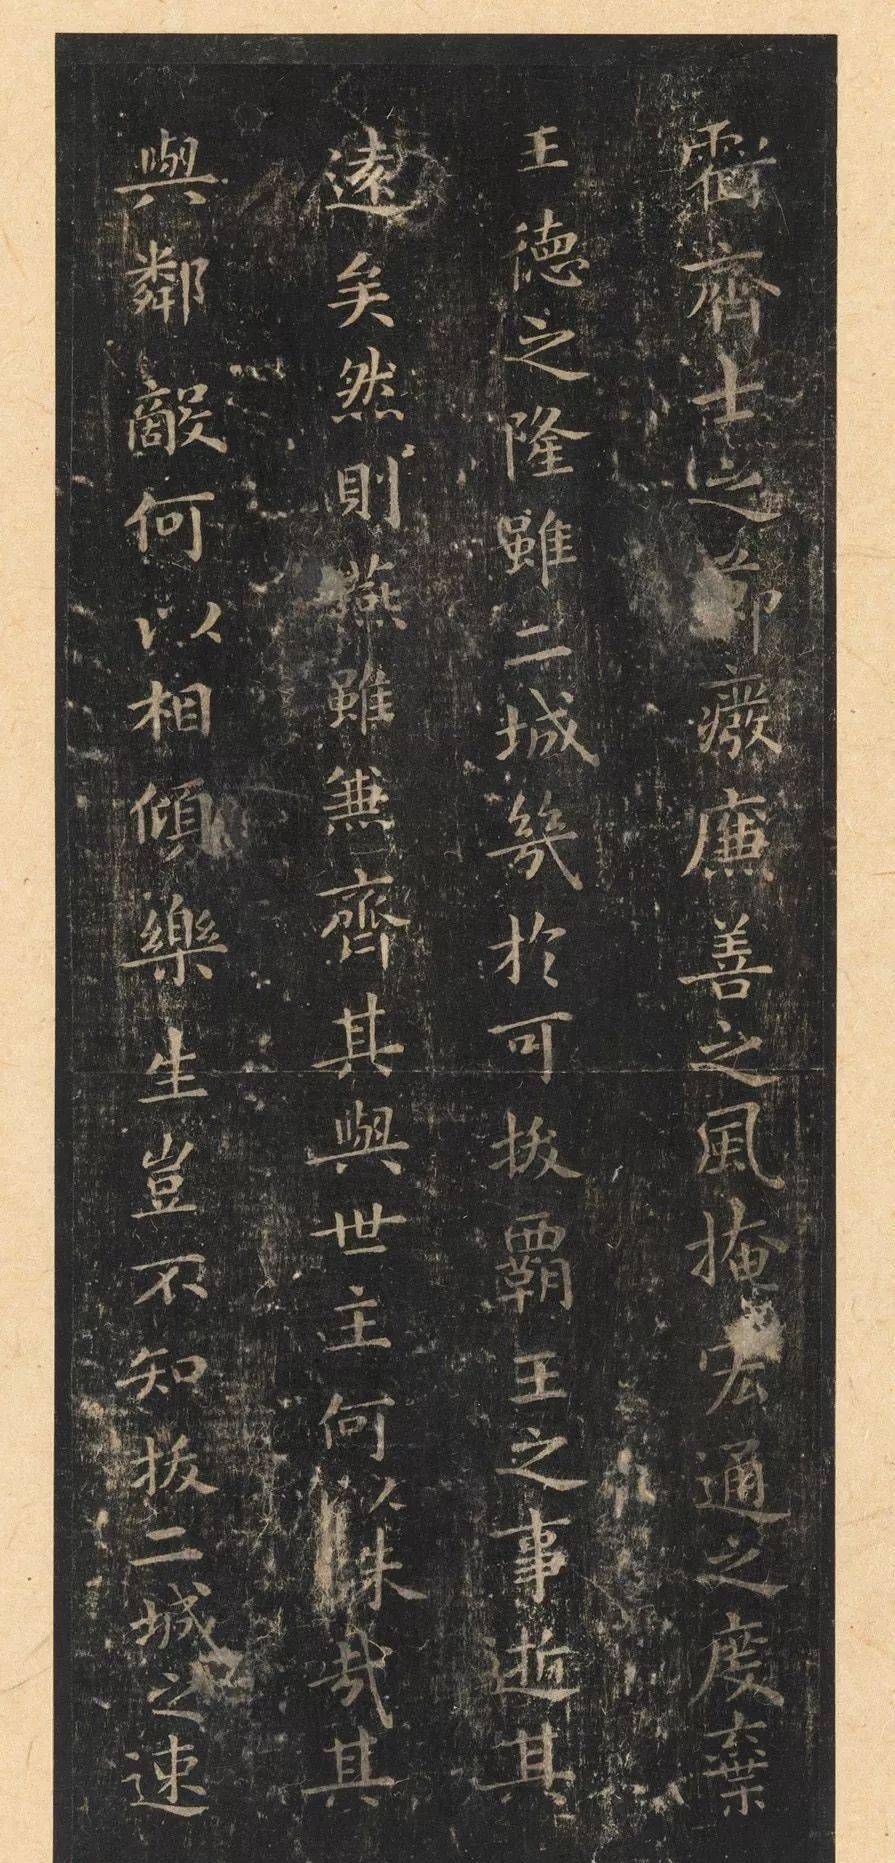 衝齊士之節廢廉善之風掩宏通之度棄
王德之隆雖二城幾於可拔霸王之事逝其
遠矣然則燕雖兼齊其與世主何以殊哉其
與鄰敵何以相傾樂生豈不知拔二城之速